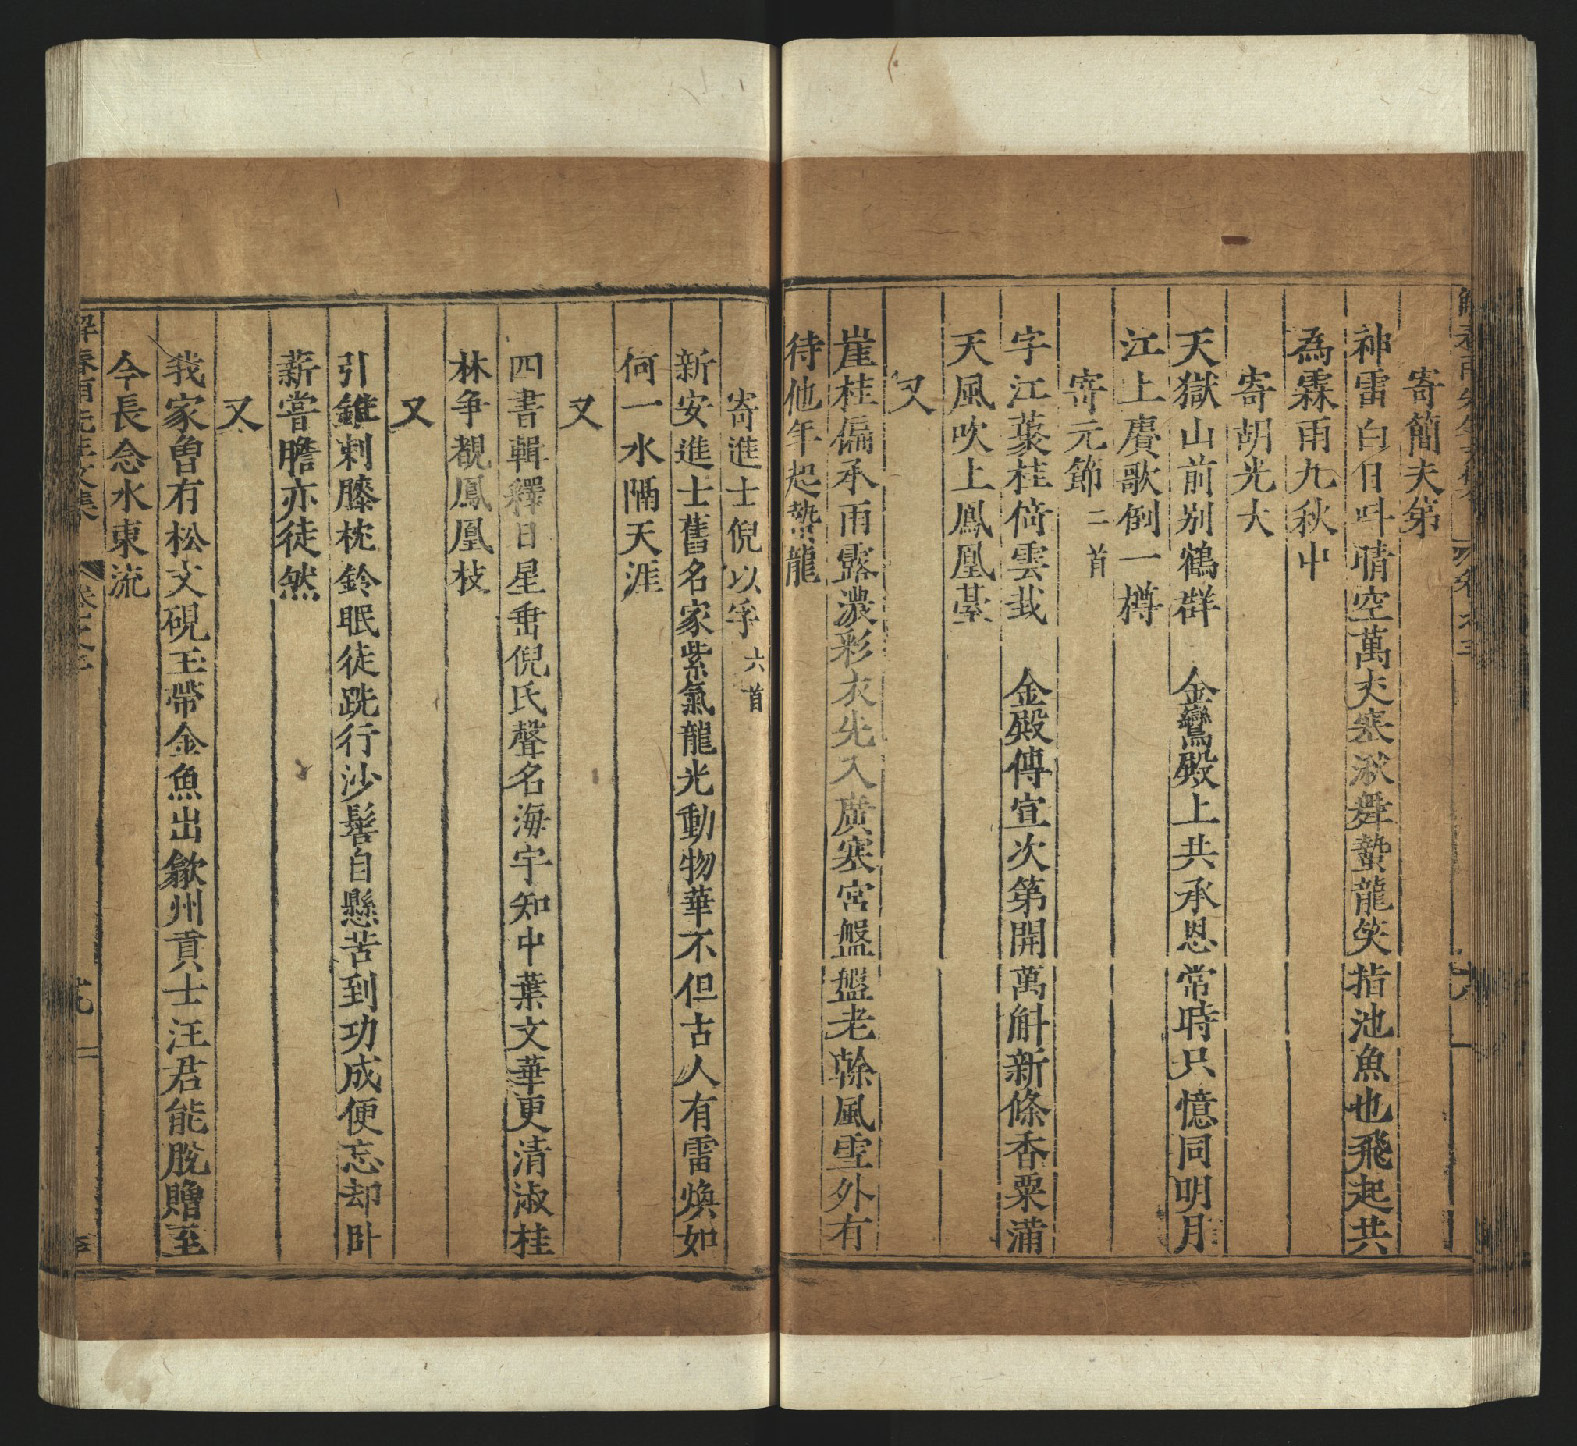 寄簡夫第
神雷白日吽晴空萬夫寒湫舞蟄龍笑指池魚也飛起共
為霖雨九秋中
寄胡光大
天獄山前别鶴群 金鸞殿上共承恩常時只憶同明月
江上賡歌倒一樽
寄元節二首
字江蓁桂倚雲㦲 金殿傳宣次第開萬斛新條香粟蒲
天風吹上鳳凰䑓
又
崖桂偏承雨露濃彩衣先入廣寒宮盤盤老榦風雪外有
待他年起蟄龍
寄進士倪以字六首
新安進士舊名家紫氣龍光動物華不但古人有雷煥如
何一水隔天涯
又
四書輯釋日星垂倪氏聲名海宇知中葉文華更清淑桂
林争覩鳳凰枝
又
引錐刺膝枕鈴眠徒跣行沙髻自懸苦到功成便忘却卧
薪嘗膽亦徒然
又
我家曽有松文硯玉帶金魚出歙州貢士汪君能脫贈至
今長念水東流
解春雨先生文集 卷之三